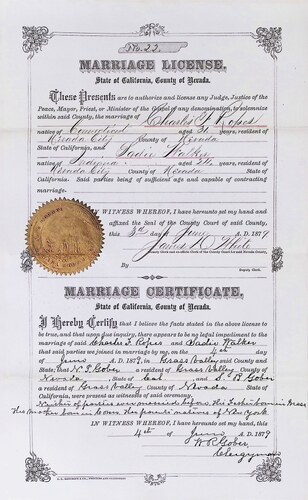 No. 22.
MARRIAGE LICENSE.
State of California, County of Nevada.
These Presents are to authorize and license any Judge, Justice of the
Peace, Mayor, Priest, or Minister of the Gospel of any denomination, to solemnize
within said County, the marriage of Charles F. Ropes
native of Connecticut aged 31 years, resident of
Nevada City County of Nevada
State of California, and Sadie Walker
native of Indiana aged years, resident of
Nevada City County of Nevada State of
California. Said parties being of sufficient age and capable of contracting
marriage.
IN WITNESS WHEREOF, I have hereunto set my hand and
affixed the Seal of the County Court of said County,
this 3d day of June A.D. 1879
James D. White
By
Deputy Clerk.
MARRIAGE CERTIFICATE.
State of California, County of Nevada.
I Hereby Certify that I believe the facts stated in the above license to
be true, and that upon due inquiry, there appears to be no legal impediment to the
marriage of said Charles F. Ropes and Sadie Walker
that said parties were joined in marriage by me, on the 4th day
of June A.D. 1879, in Grass Valley said County and
State; that N. S. Gober a resident of Grass Valley County of
Nevada State of Cal and S. B. Gober
a resident of Grass Valley County of Nevada State of
California, were present as witnesses of said ceremony.
Neither of parties ever married before the
mother born in natives of New York
IN WITNESS WHEREOF, I have hereunto set my hand, this
4th of June A.D. 1879
W R Gober
Clergyman